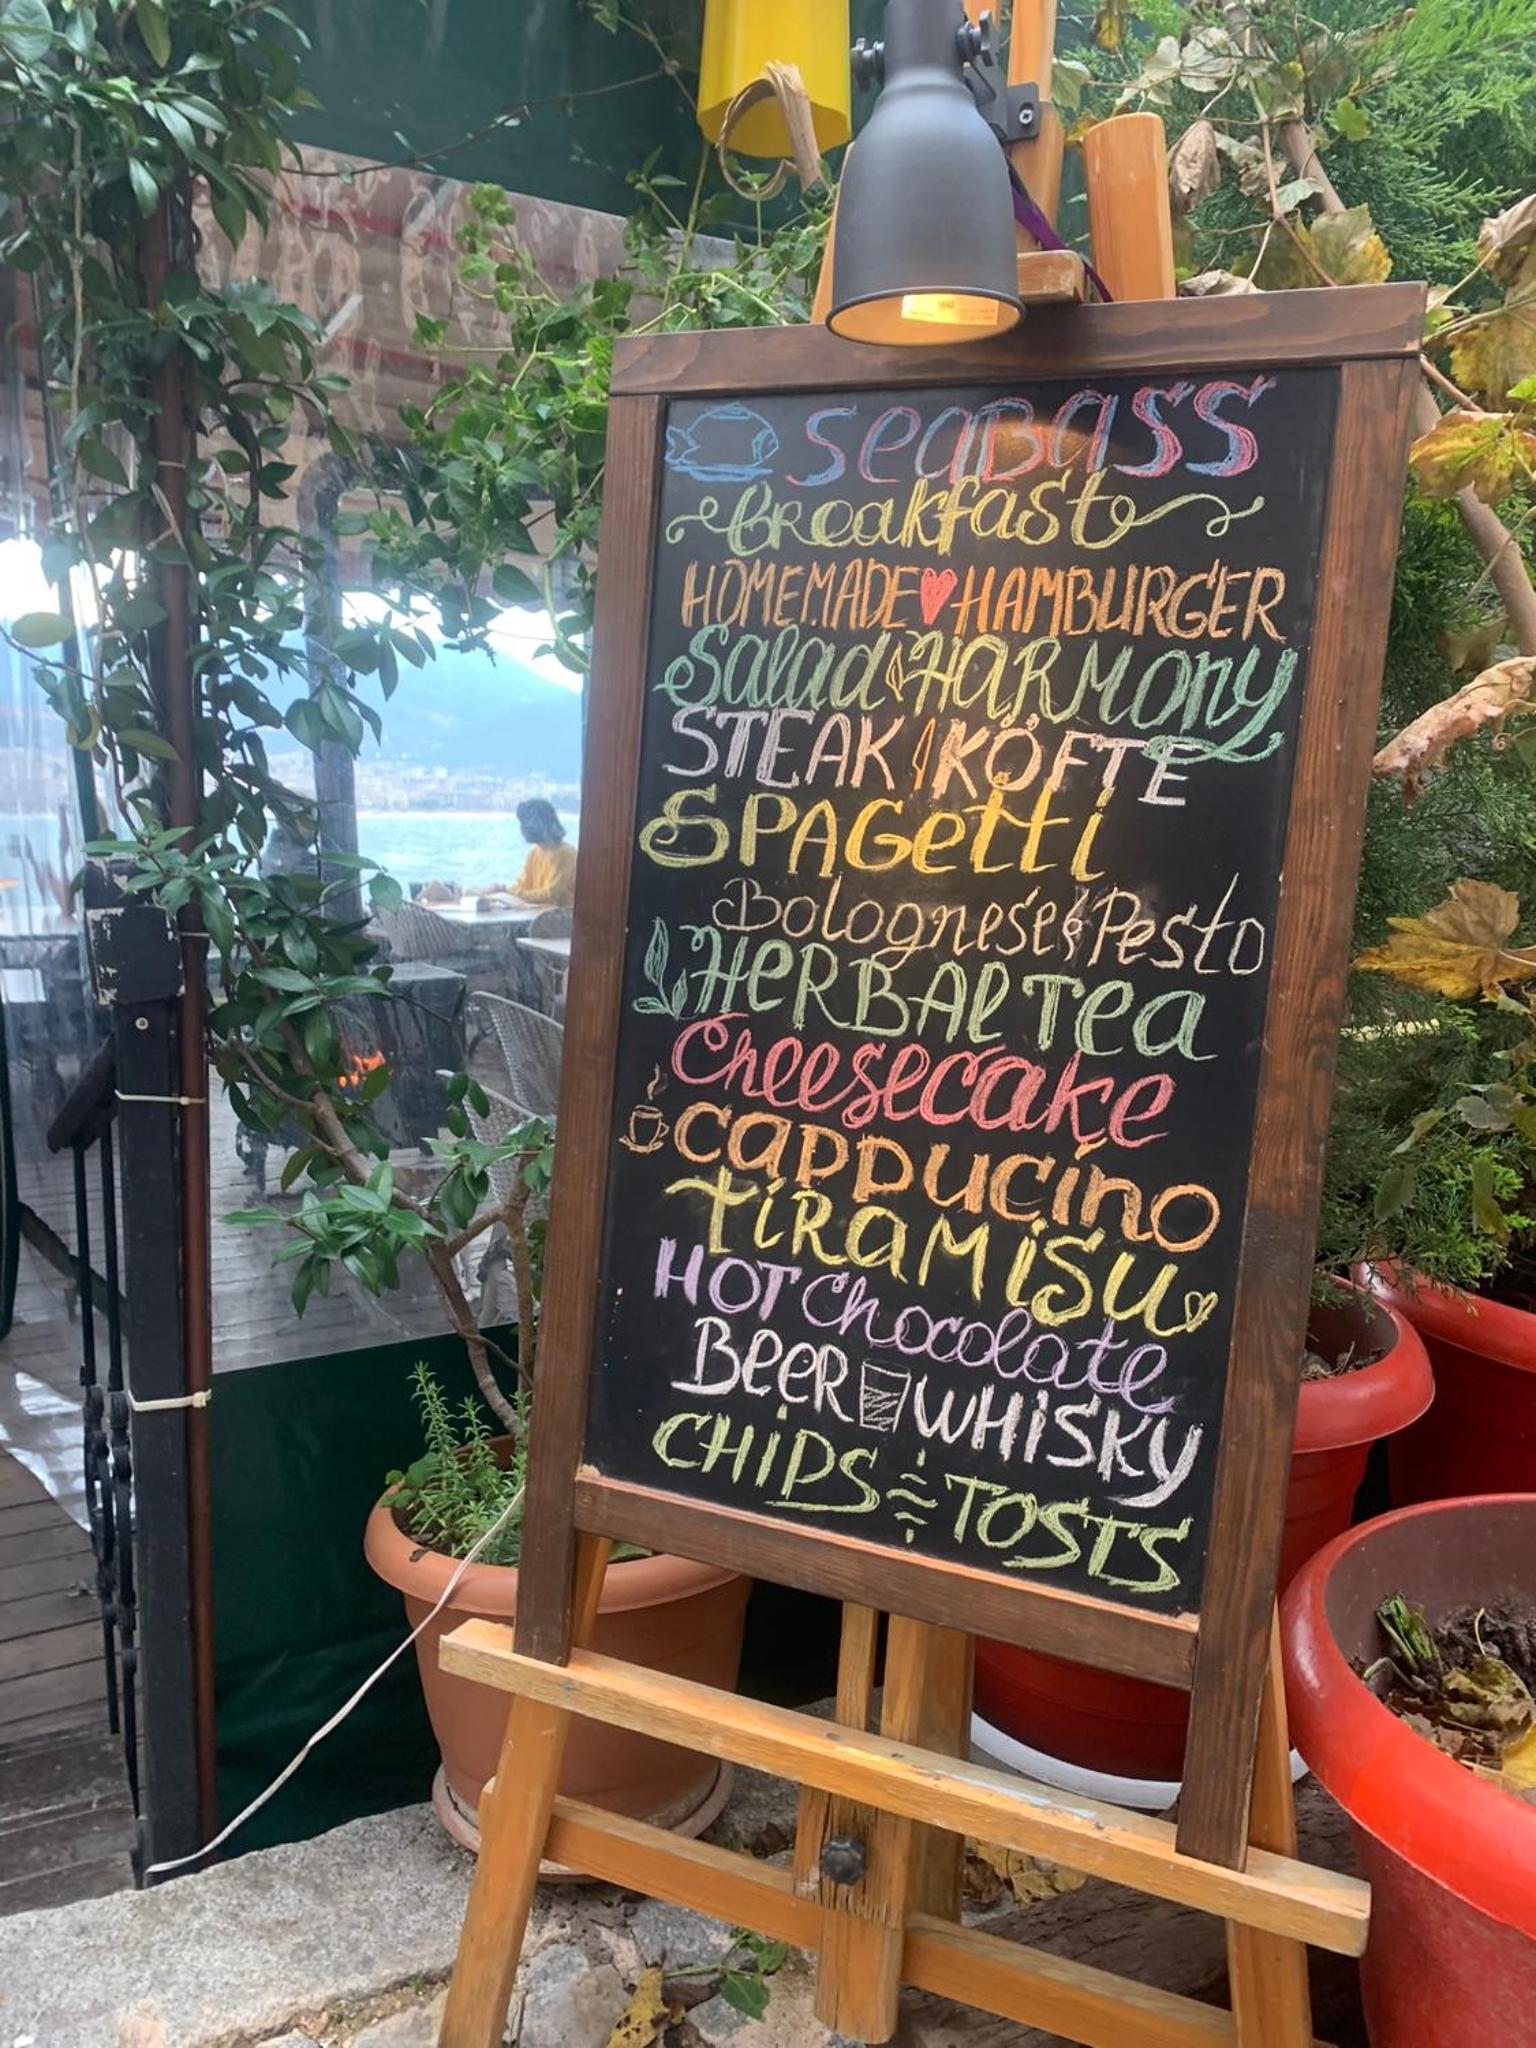 SeaBaSS
Breakfast
HOMEMADE HAMBURGER
Salad HARMony
STEAK KÖFTE
SPAGetti
Bolognese & Pesto
HeRBAl Tea
Cheesecake
CAPPUCino
TiRAMiSu
HOT Chocolate
BeeR WHiSKy
CHiPS & TOSTS